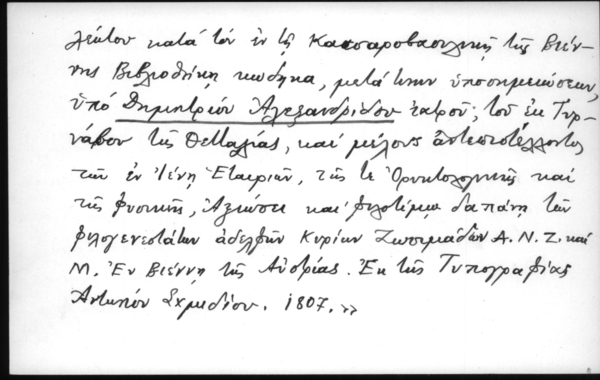 λέκτου κατά τόν ἐν τῇ Καισαροβασιλικῇ τῆς Βιέν-
νης Βιβλιοθήκῃ κώδηκα, μετά τινων ὑποσημειώσεων,
ὑπό Δημητρίου Ἀλεξανδρίδου ἰατροῦ, τοῦ ἐκ Τυρ-
νάβου τῆς Θετταλίας, καί μέλους ἀντεπιστέλλοντος
τῶν ἐν Ἰένῃ Ἑταιριῶν, τῆς τε Ὀρυκτολογικῆς καί
τῆς φυσικῆς, Ἀξιώσει καί φιλοτίμῳ δαπάνῃ τῶν
φιλογενεστάτων ἀδελφῶν Κυρίων Ζωσιμάδων Α. Ν. Ζ. καί
Μ. Ἐν Βιέννῃ τῆς Αὐστρίας. Ἐκ τῆς Τυπογραφίας
Ἀντωνίου Σχμιδίου. 1807.»